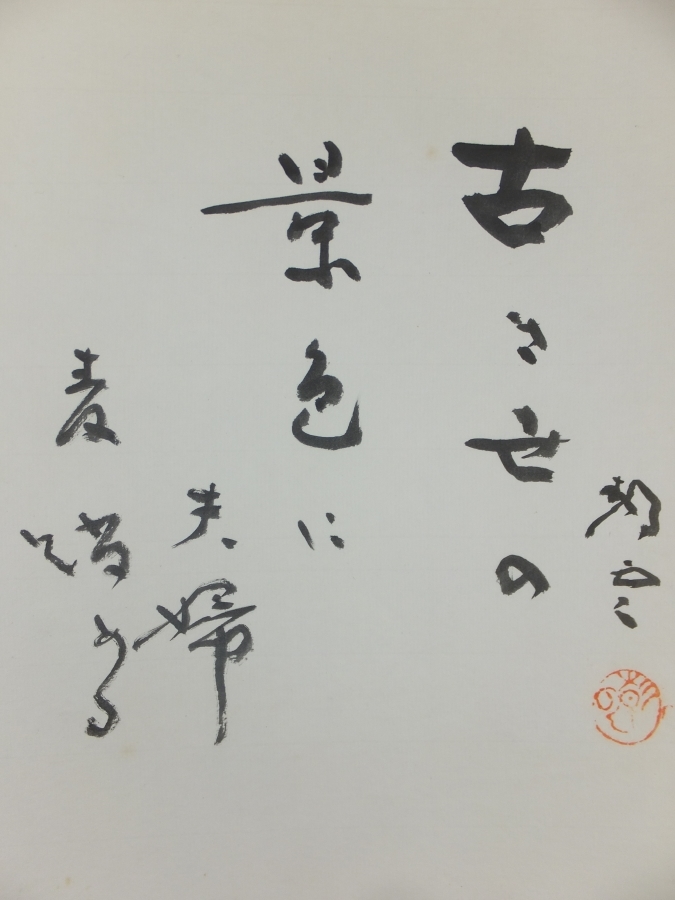 静雲
古き世の
景色に
夫婦
麦踏める